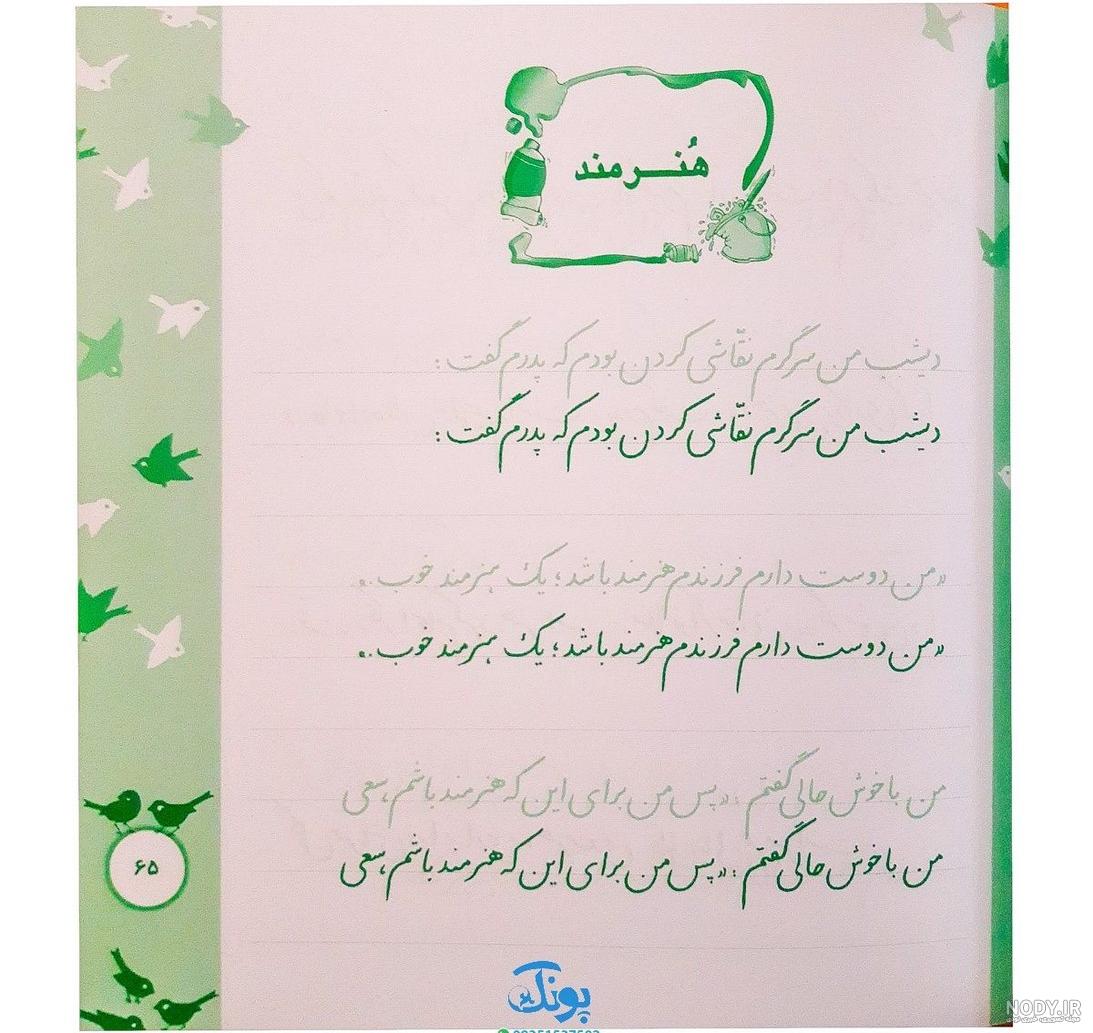 هُنـــرمند
دیشب من سرگرم نقّاشی کردن بودم که پدرم گفت :
دیشب من سرگرم نقّاشی کردن بودم که پدرم گفت :
«من دوست دارم فرزندم هنرمند باشد؛ یک هنرمند خوب.»
«من دوست دارم فرزندم هنرمند باشد؛ یک هنرمند خوب.»
من با خوش حالی گفتم : «پس من برای این که هنرمند باشم، سعی
من با خوش حالی گفتم : «پس من برای این که هنرمند باشم، سعی
۶۵
پونک
NODY.IR